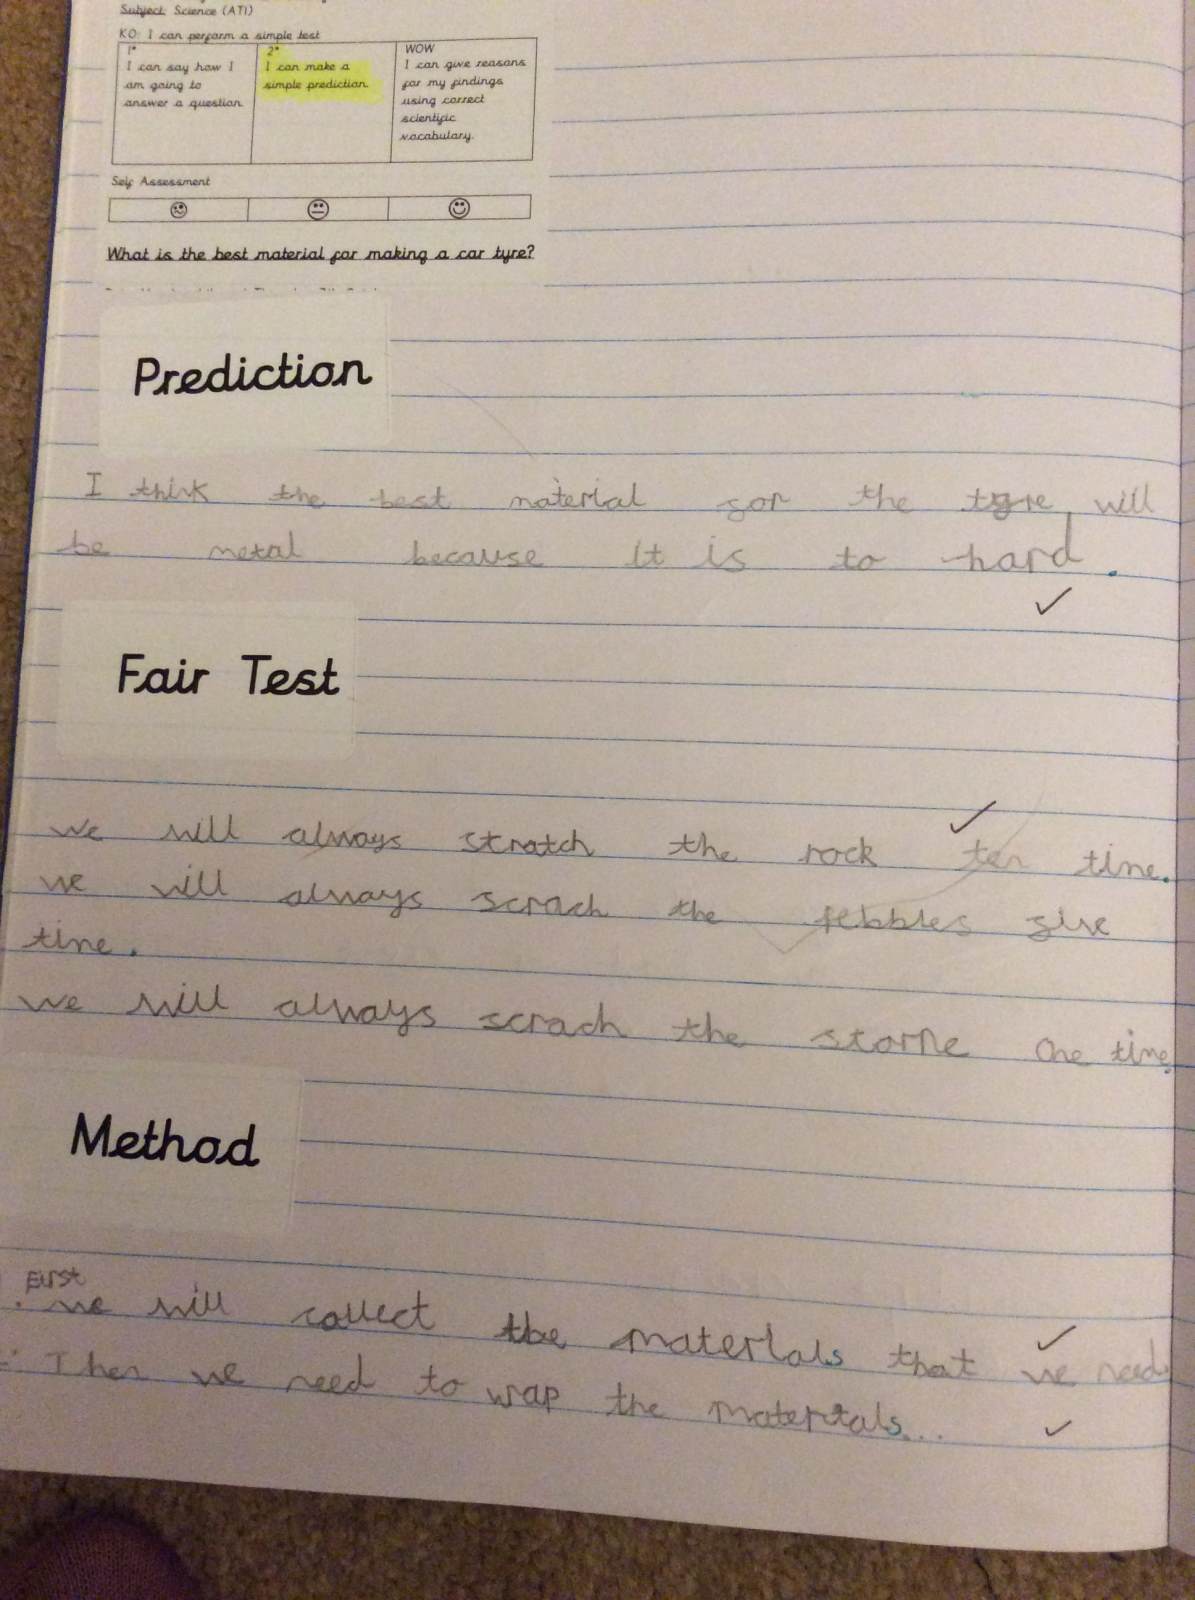 Subject: Science (AT1)
KO: I can perform a simple test
1*
I can say how I
am going to
answer a question
2*
I can make a
simple prediction.
WOW
I can give reasons
for my findings
using correct
scientific
vocabulary.
Self Assessment
What is the best material for making a car tyre?
Prediction
I think the best material for the tyre will
be metal because it is to hard.
Fair Test
we will always stratch the rock ten time.
we will always scrach the febbles five
time.
we will always scrach the storne one time.
Method
First
we will collect the materials that we need
Then we need to wrap the materials...